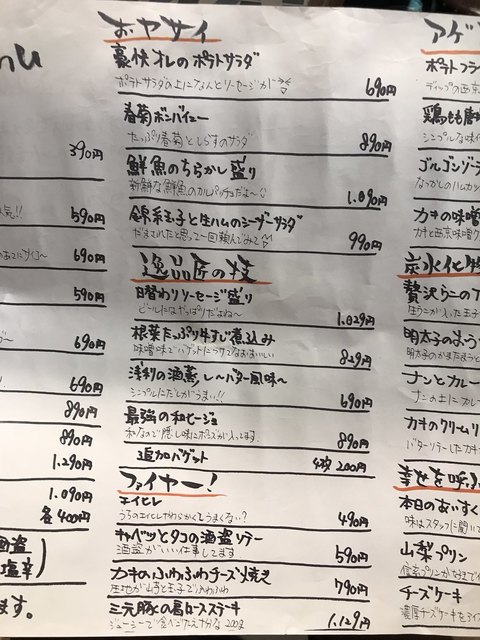 nu
390円
590円
690円
590円
690円
690円
890円
890円
1.290円
1.090円
各400円
塩辛
ます。
オヤサイ
豪快オレのポテトサラダ
ポテトサラダの上になんとソーセージが
690円
春菊ボンバイエー
たっぷり春菊としらすのサラダ
890円
鮮魚のちらかし盛り
新鮮な鮮魚のカルパッチョだよ〜
1.090円
錦糸玉子と生ハムのシーザーサラダ
だまされたと思って一回頼んでみて
990円
逸品匠の技
日替わりソーセージ盛り
ビールにはやっぱりだよね〜
1.029円
根菜たっぷり牛すじ煮込み
味噌味でバゲットにつけてもおいしい
829円
浅利の酒蒸し〜バター風味〜
シンプルにだしがうまい!!
690円
最強の和セージョ
和なので隠し味にポン酢が入ってます
890円
追加バゲット
4枚 200円
ファイヤー!
エイヒレ
うちのエイヒレやわらかくてうまくない?
490円
キャベツとタコの酒盗ソテー
酒盗がいい仕事してます
590円
カキのふわふわチーズ焼き
生地が山芋と玉子でふわふわ
790円
三元豚の肩ロースステーキ
ジューシーで食べごたえ十分な200g
1.129円
アゲ
ポテトフラ
鶏もも唐
シンプルな味
ゴルゴンゾー
なつかしのハムカツ
カキの味噌
カキと西京味噌
炭水化物
贅沢うにのア
明太子のおう
ナンとカレー
ナンの土にカレー
カキのクリームリ
バターソテーしたカキ
幸せを呼ぶ
本日のあいすく
味はスタッフに聞いて
山梨プリン
チーズケーキ
濃厚チーズケーキを